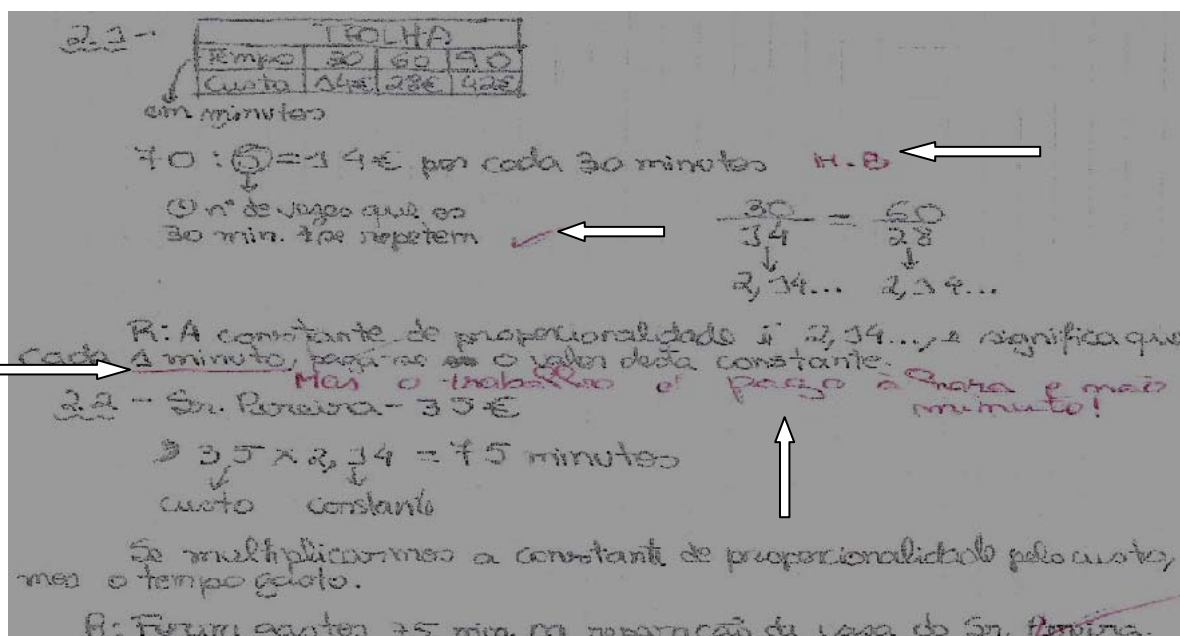 2.1-
TROLHA
Tempo 30 60 90
Custo 14€ 28€ 42€
em minutos
70 : 5 = 14€ por cada 30 minutos M.B
(5) nº de vezes que os
30 min. se repetem
30/14 = 60/28
2,14... 2,14...
R: A constante de proporcionalidade é 2,14..., e significa que
cada 1 minuto, paga-se o valor desta constante.
Mas o trabalho é pago à hora e não
minuto!
2.2 - Sr. Pereira - 35€
35 x 2,14 = 75 minutos
custo constante
Se multiplicarmos a constante de proporcionalidade pelo custo,
mos o tempo gasto.
R: Foram gastos 75 min. na reparação da casa do Sr. Pereira.